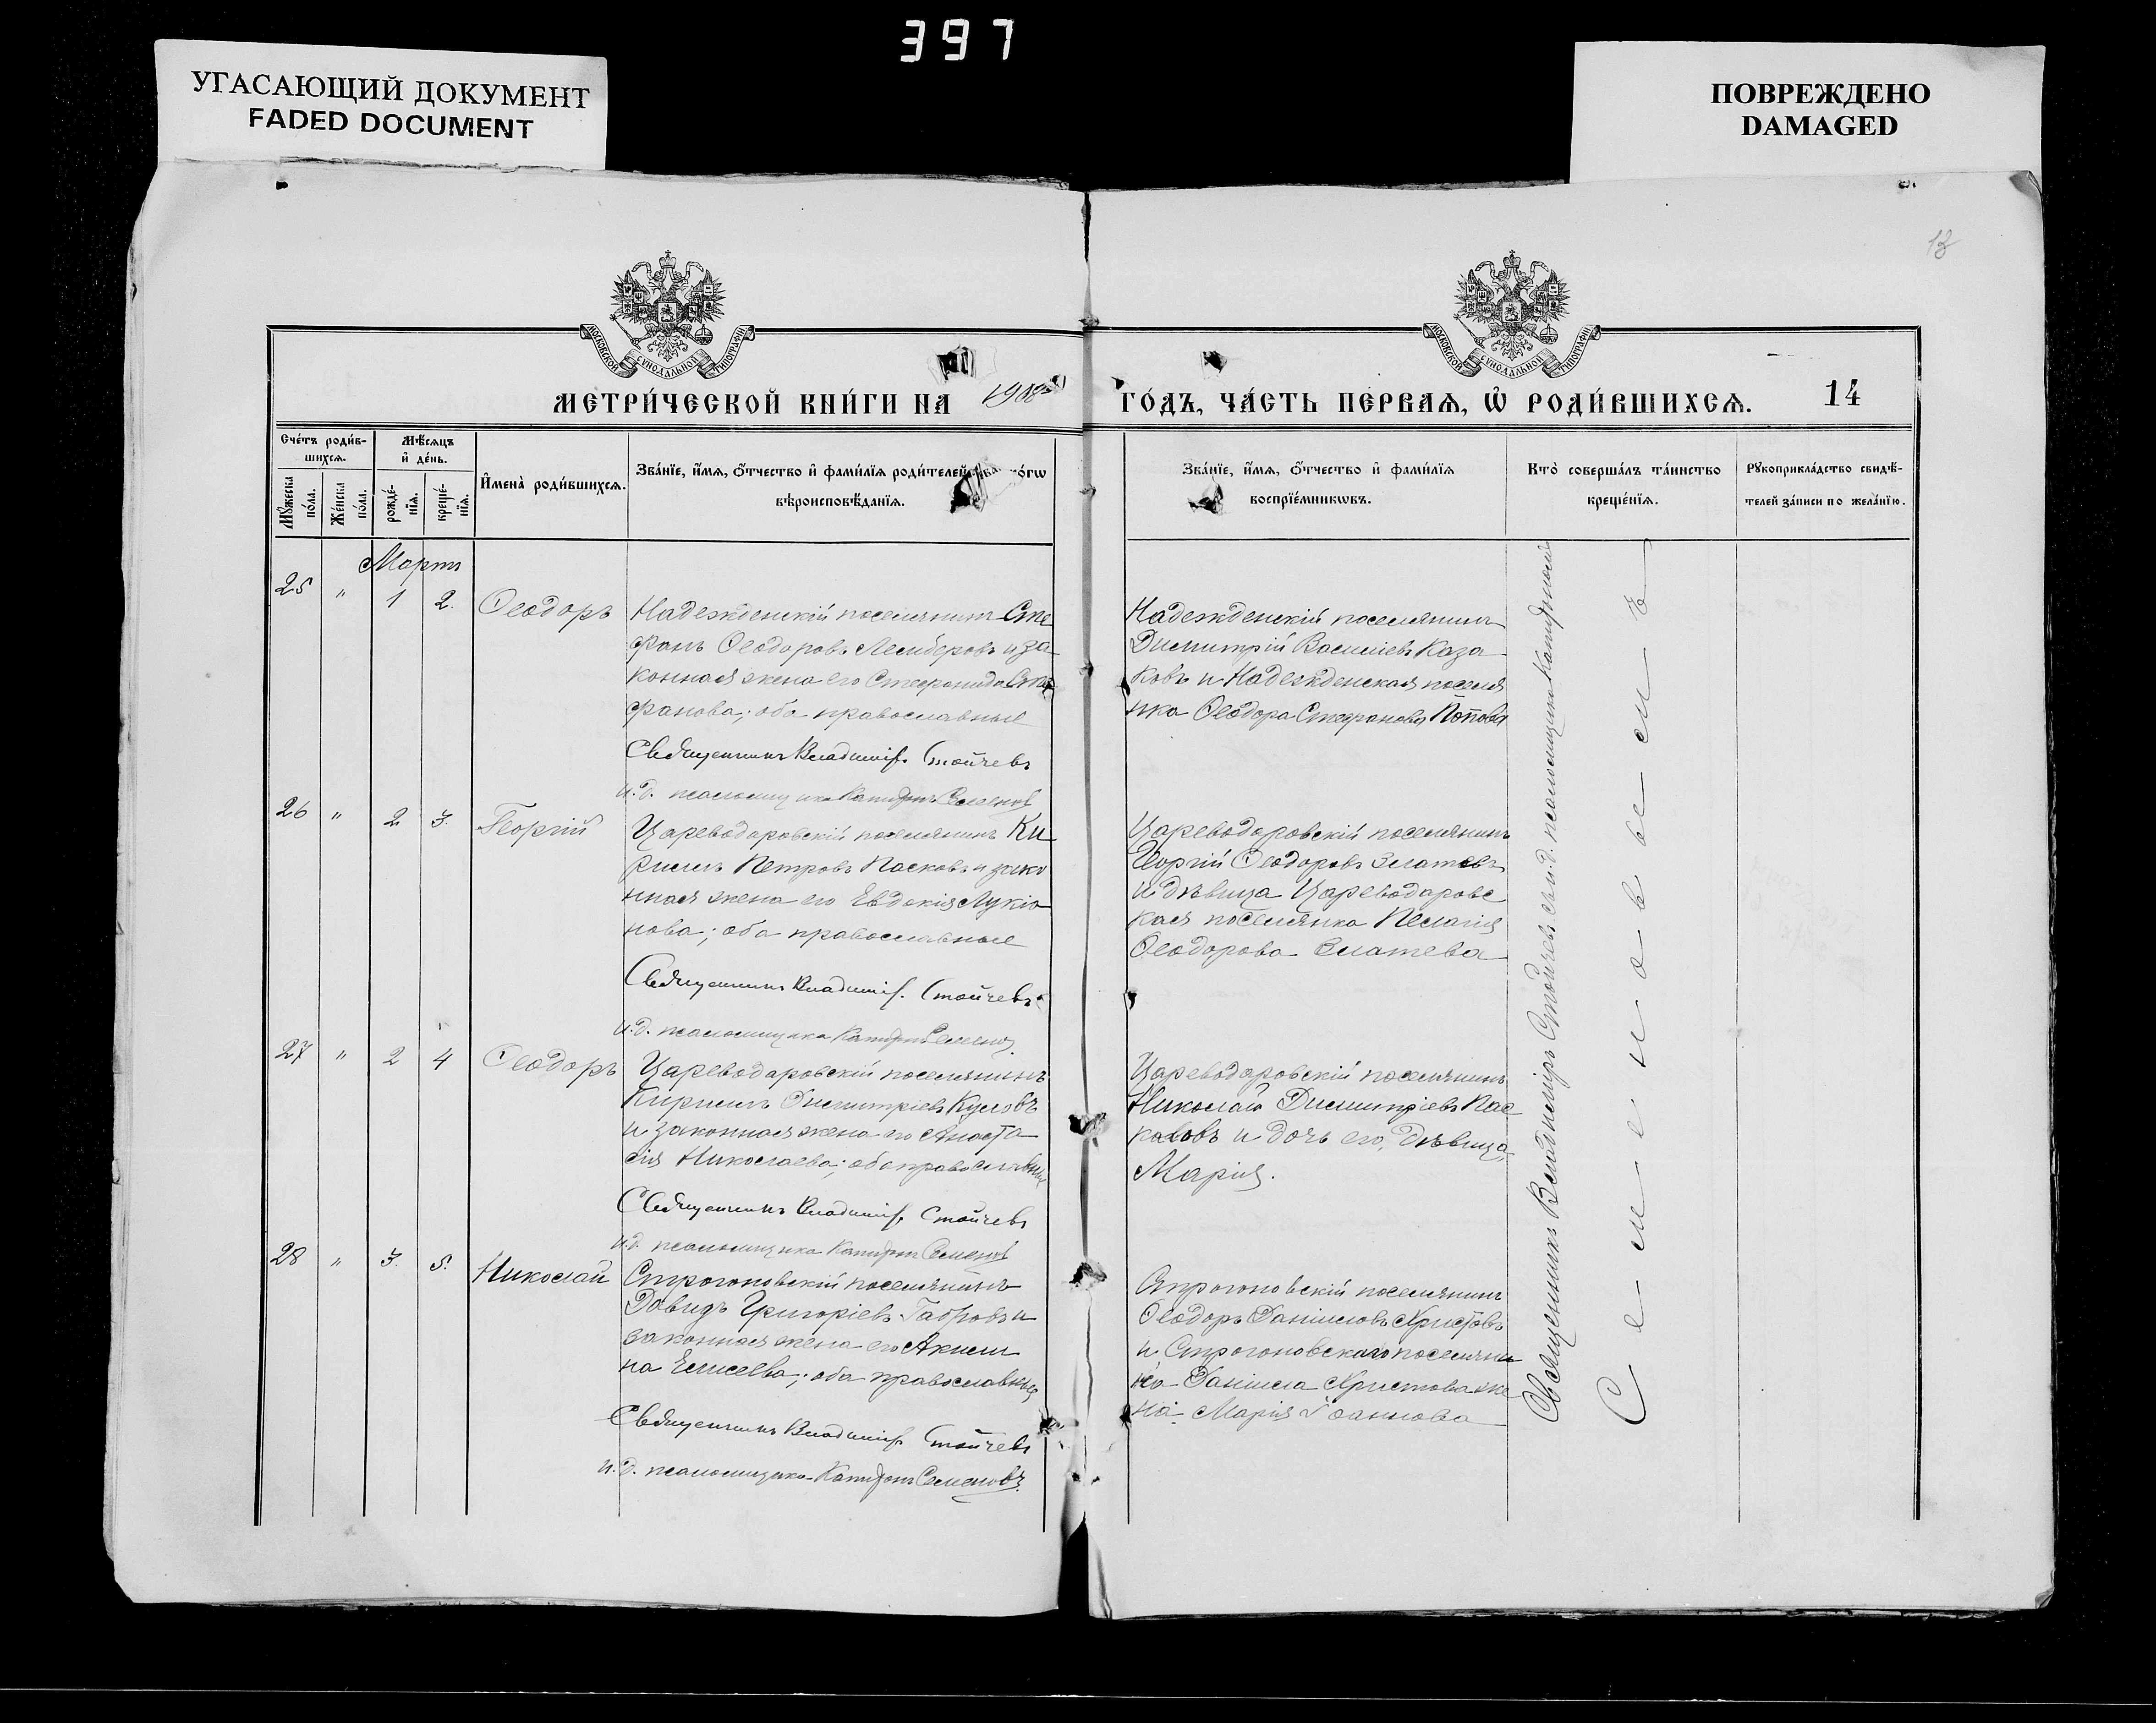 397
УГАСАЮЩИЙ ДОКУМЕНТ
FADED DOCUMENT
ПОВРЕЖДЕНО
DAMAGED
13
МОСКОВСКОЙ СѴНОДАЛЬНОЙ ТИПОГРАФІИ
МОСКОВСКОЙ СѴНОДАЛЬНОЙ ТИПОГРАФІИ
МЕТРИ́ЧЕСКОЙ КНИ́ГИ НА 1908
ГО́ДЪ, ЧА́СТЬ ПЕ́РВАѦ, Ѡ҆ РОДИ́ВШИХСѦ. 14
Сче́тъ роди́в-
шихсѧ.
Мꙋжеска
по́ла.
Же́нска
по́ла.
Мѣ́сѧцъ
и҆ де́нь.
рожде́-
нїѧ.
креще́-
нїѧ.
И҆мена̀ роди́вшихсѧ.
Зва́нїе, и҆́мѧ, ѻ҆́тчество и҆ фами́лїѧ роди́телей
вѣроисповѣ́данїѧ.
Зва́нїе, и҆́мѧ, ѻ҆́тчество и҆ фами́лїѧ
воспрїе́мникѡвъ.
Кто̀ соверша́лъ та́инство
креще́нїѧ.
Рꙋкоприкла́дство свидѣ́-
телей за́писи по жела́нїю.
Мартъ
25 " 1 2. Ѳеодоръ
Надежденскій поселянинъ Сте
фанъ Ѳеодоровъ Лемберовъ и за
конная жена его Стефанида Сте
фанова; оба православные
Священникъ Владимір. Стойчевъ
и.д. псаломщика Семенов
Надежденскій поселянинъ
Димитрій Васильевъ Каза
ковъ и Надежденская поселя
нка Ѳеодора Стефанова Попова
26 " 2 3. Георгій
Цареводаровскій поселянинъ Ки
риллъ Петровъ Пасковъ и зако
нная жена его Евдокія Лукія
нова; оба православные
Священникъ Владимір. Стойчевъ
и.д. псаломщика
Цареводаровскій поселянинъ
Георгій Ѳеодоровъ Златевъ
и дѣвица Цареводаровс
кая поселянка Пелагія
Ѳеодорова Златева
27 " 2 4 Ѳеодоръ
Цареводаровскій поселянинъ
Кириллъ Димитріевъ
и законная жена его Анаста
сія Николаева; оба православные
Священникъ Владимір. Стойчевъ
и.д. псаломщика Семенов
Цареводаровскій поселянинъ
Николай Димитріевъ Пас
каловъ и дочь его, дѣвица,
Марія.
28 " 3. 5. Николай
Строгоновскій поселянинъ
Давидъ Григоріевъ Габровъ и
законная жена его Акили
на Елисеева; оба православные
Священникъ Владимір. Стойчевъ
и.д. псаломщика Семеновъ
Строгоновскій поселянинъ
Ѳеодоръ Даніиловъ Христовъ
и Строгоновскаго поселяни
на Даніила Христова же
на Марія Іоаннова
Священникъ Владиміръ Стойчевъ съ и.д. псаломщика
Семеновъ